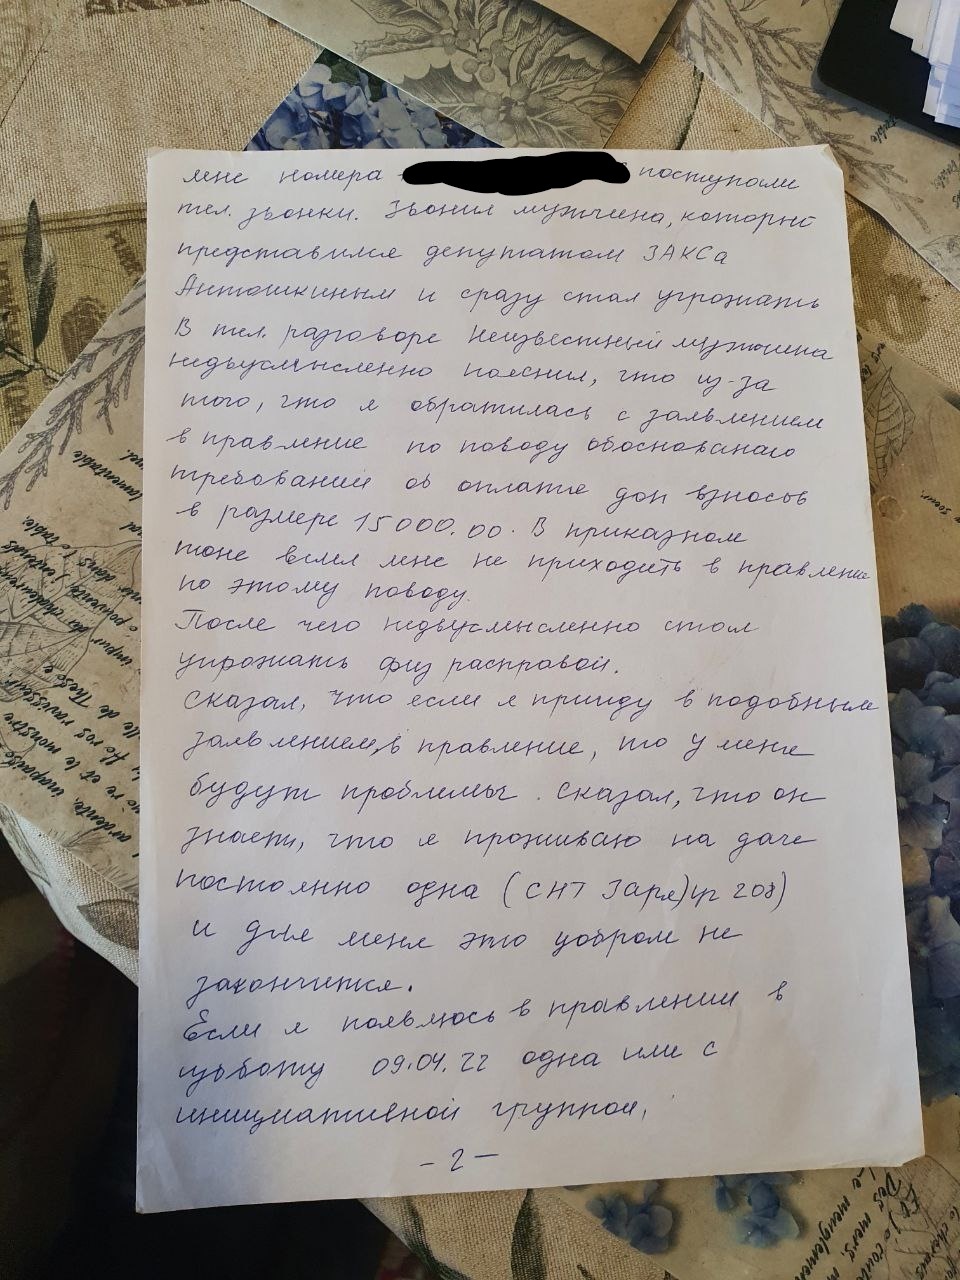 мне номера поступали
тел. звонки. Звонил мужчина, который
представился депутатом ЗАКСа
Антошкиным и сразу стал угрожать
В тел. разговоре Неизвестный мужчина
недвусмысленно пояснил, что из-за
того, что я обратилась с заявлением
в правление по поводу обоснованно
требований об оплате доп взносов
в размере 15000.00. В приказном
тоне велел мне не приходить в правление
по этому поводу.
После чего недвусмысленно стал
угрожать физ расправой.
Сказал, что если я прииду в подобным
заявлением, в правление, то у меня
будут проблемы. Сказал, что он
знает, что я проживаю на даче
постоянно одна (СНТ Заря)
и для меня это добром не
закончится.
Если я появлюсь в правлении в
субботу 09.04.22 одна или с
инициативной группой,
- 2 -